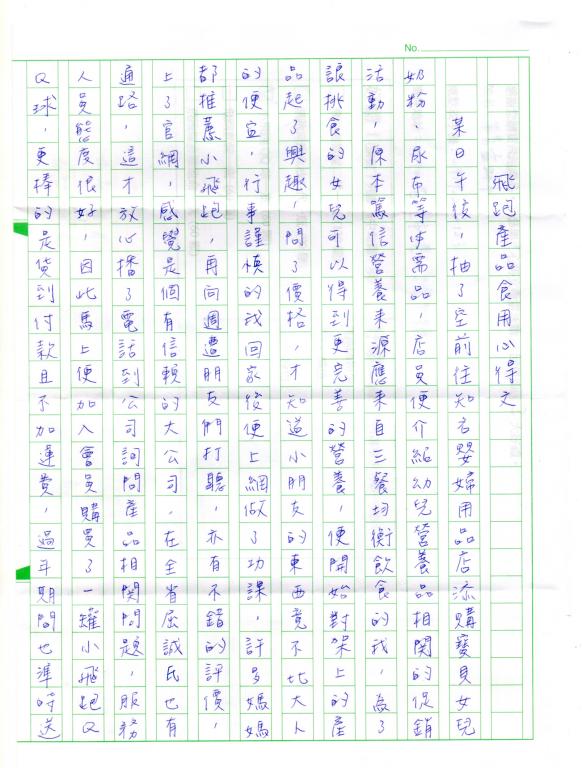 No.
飛跑產品食用心得文
某日午後，抽了空前往知名嬰婦用品店添購寶貝女兒
奶粉、尿布等需品，店員便介紹幼兒營養品相關的促銷
活動，原本篤信營養來源應來自三餐均衡飲食的我，為了
讓挑食的女兒可以得到更完善的營養，便開始對架上的產
品起了興趣，問了價格，才知道小朋友的東西竟不比大人
的便宜，行事謹慎的我回家後便上網做了功課，許多媽媽
都推薦小飛跑，再向週遭朋友們打聽，亦有不錯的評價，
上了官網，感覺是個有信賴的大公司，在全省屈誠氏也有
通路，這才放心播了電話到公司詞問產品相關問題，服務
人員態度很好，因此馬上便加入會員購買了一罐小飛跑Q
Q球，更棒的是貨到付款且不加運費，過年期間也準時送